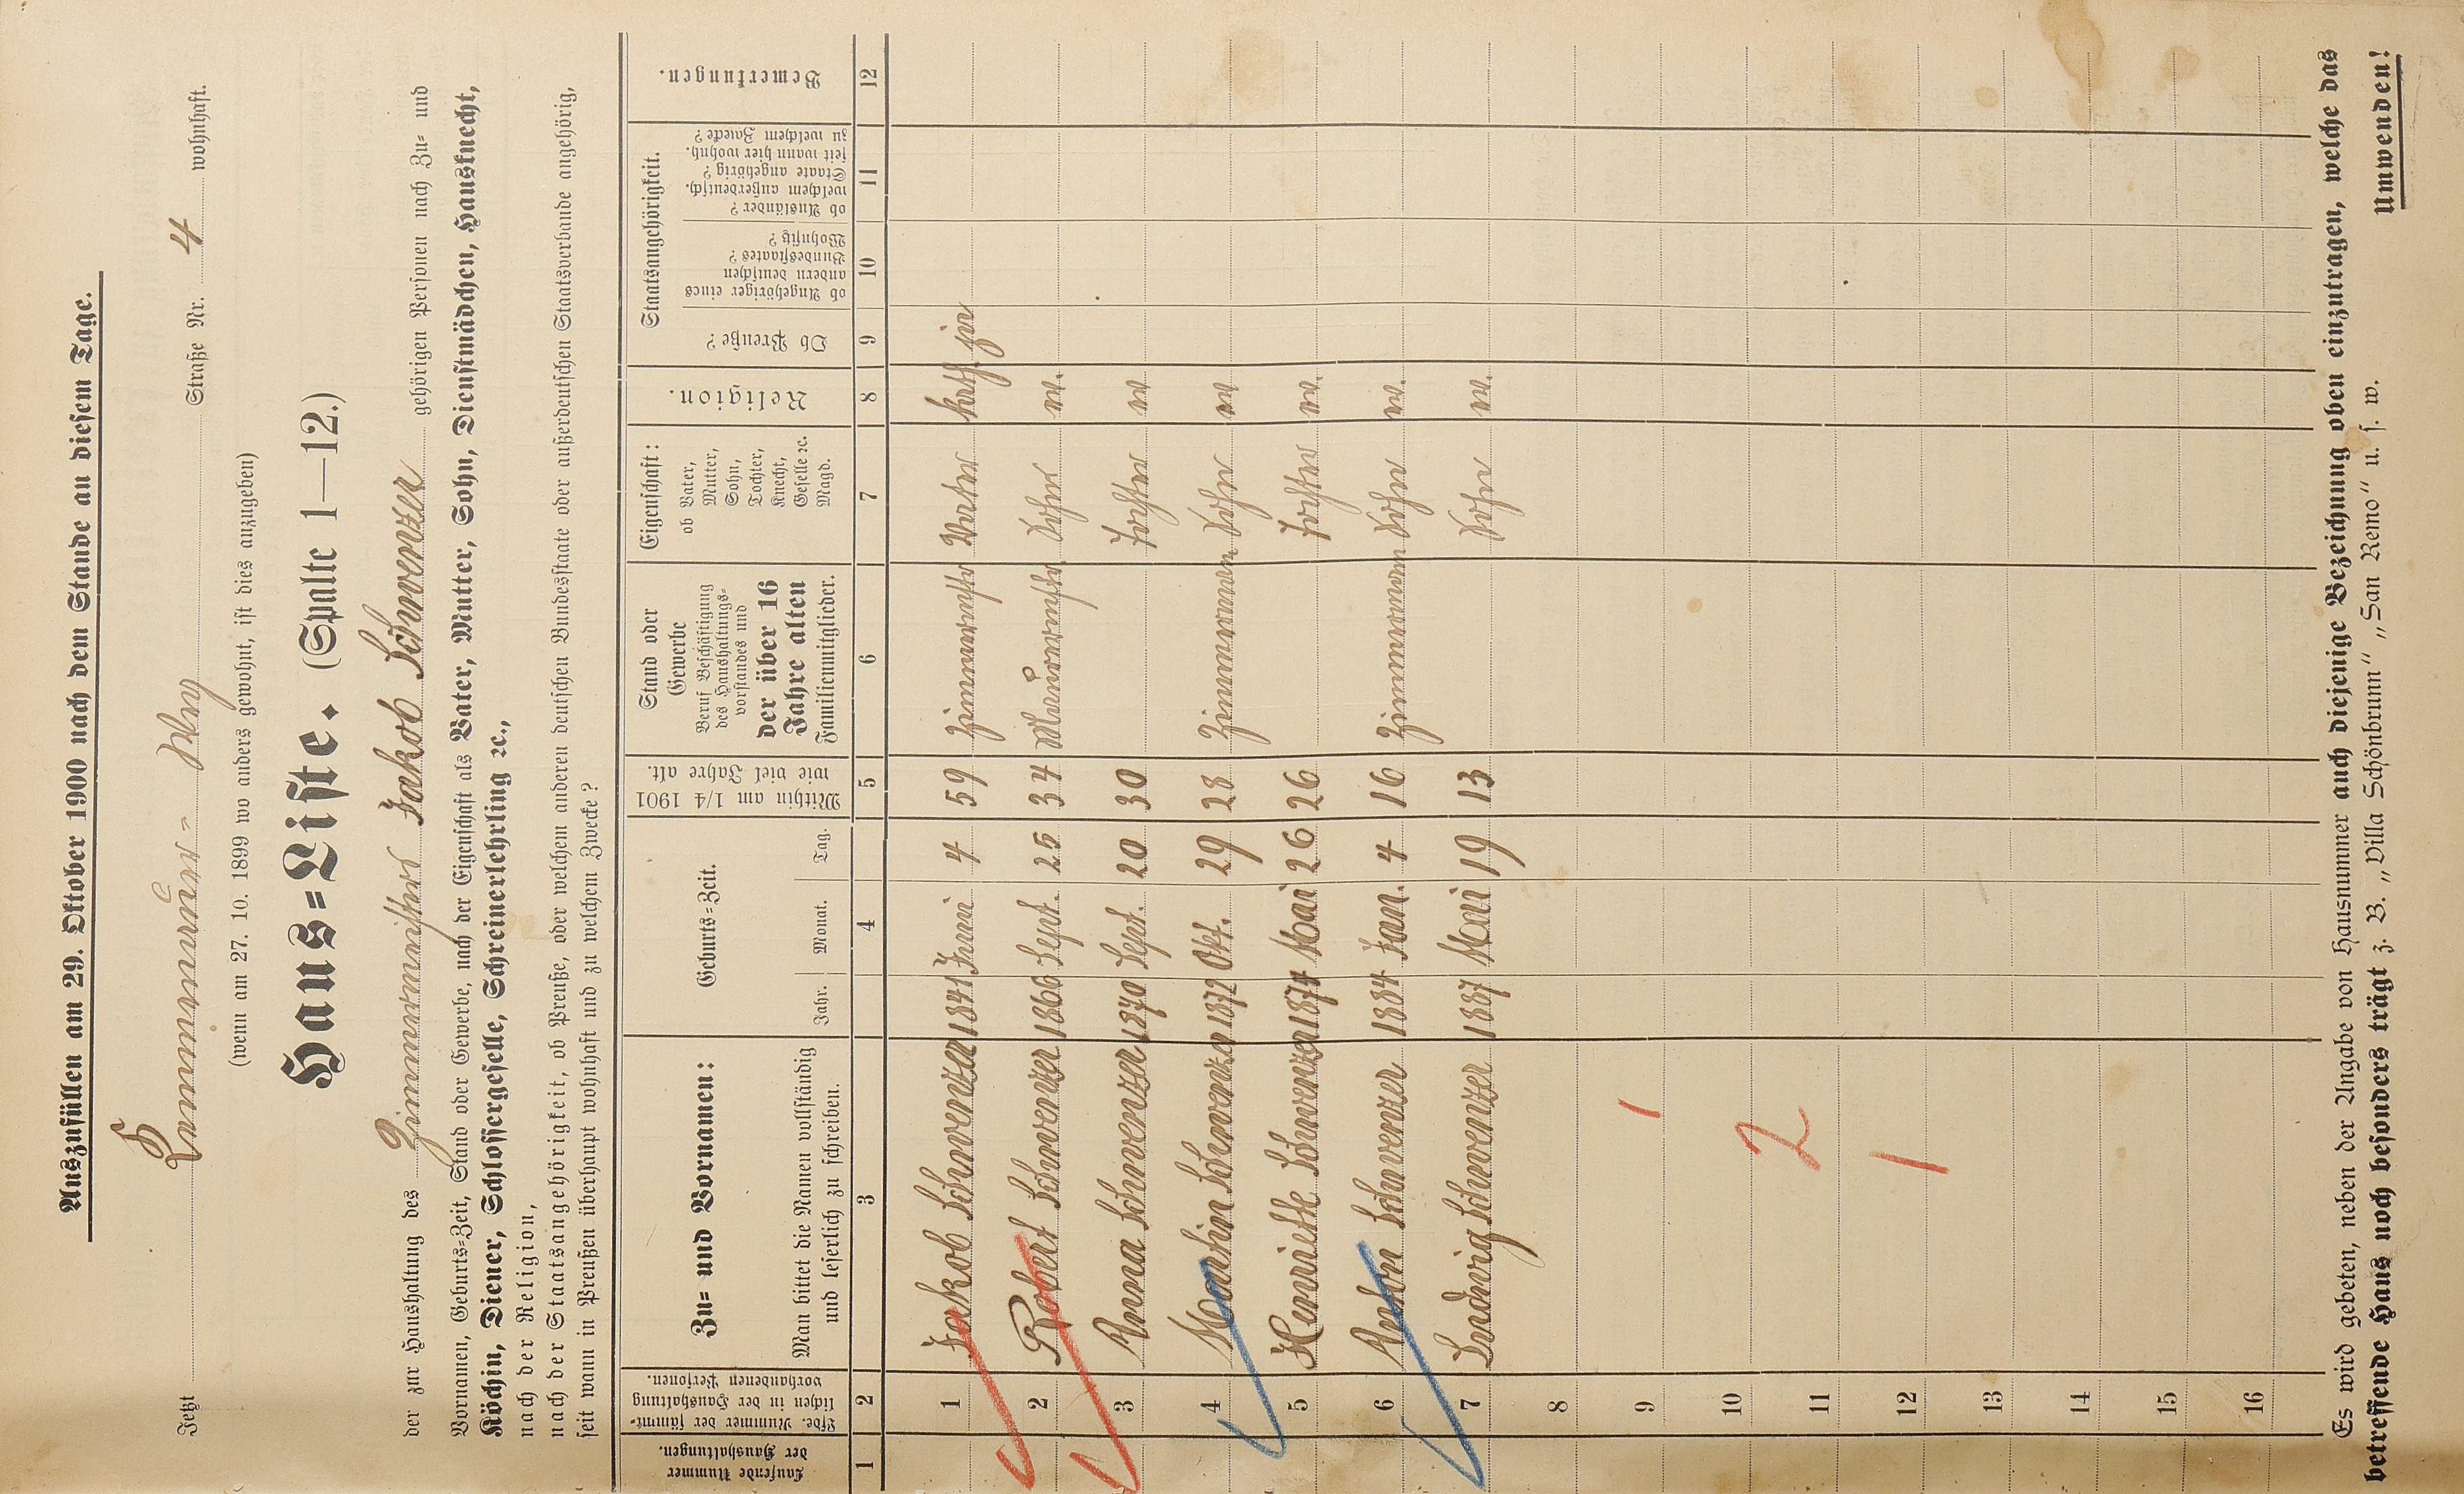 Auszufüllen am 29. Oktober 1900 nach dem Stande an diesem Tage.
Jetzt Straße Nr. 4 wohnhaft.
(wenn am 27. 10. 1899 wo anders gewohnt, ist dies anzugeben)
Haus=Liste. (Spalte 1—12.)
der zur Haushaltung des Zimmermstrs Jakob Schwenzer gehörigen Personen nach Zu= und
Vornamen, Geburts=Zeit, Stand oder Gewerbe, nach der Eigenschaft als Vater, Mutter, Sohn, Dienstmädchen, Hausknecht,
Köchin, Diener, Schlossergeselle, Schreinerlehrling ꝛc.,
nach der Religion,
nach der Staatsangehörigkeit, ob Preuße, oder welchem anderen deutschen Bundesstaate oder außerdeutschen Staatsverbande angehörig,
seit wann in Preußen überhaupt wohnhaft und zu welchem Zwecke?
Laufende Nummer der Haushaltungen.
Lfde. Nummer der sämmt=lichen in der Haushaltung vorhandenen Personen.
Zu= und Vornamen:
Man bittet die Namen vollständig und leserlich zu schreiben.
Geburts=Zeit.
Jahr. Monat. Tag.
Mithin am 1/4 1901 wie viel Jahre alt.
Stand oder Gewerbe
Beruf Beschäftigung des Haushaltungs=vorstandes und der über 16 Jahre alten Familienmitglieder.
Eigenschaft:
ob Vater, Mutter, Sohn, Tochter, Knecht, Geselle ꝛc. Magd.
Religion.
Staatsangehörigkeit.
Ob Preuße?
ob Angehöriger eines andern deutschen Bundesstaates? Wohnsitz?
ob Ausländer? welchem außerdeutsch. Staate angehörig? seit wann hier wohnh. zu welchem Zwecke?
Bemerkungen.
1 2 3 4 5 6 7 8 9 10 11 12
1 Jakob Schwenzer 1841 Juni 4 59 Zimmermstr Vater kath. ja
2 Robert Schwenzer 1866 Sept. 25 34 Maurermstr Sohn "
3 Anna Schwenzer 1870 Sept. 20 30 Tochter "
4 Martin Schwenzer 1872 Okt. 29 28 Zimmermann Sohn "
5 Schwenzer 1874 Mai 26 26 Tochter "
6 Anton Schwenzer 1884 Jan. 4 16 Zimmermann Sohn "
7 Ludwig Schwenzer 1887 Mai 19 13 Sohn "
8
9
10 2
11
12 1
13
14
15
16
Es wird gebeten, neben der Angabe von Hausnummer auch diejenige Bezeichnung oben einzutragen, welche das
betreffende Haus noch besonders trägt z. B. „Villa Schönbrunn" „San Remo" u. s. w.
Umwenden!